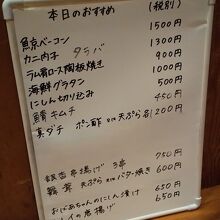 本日のおすすめ (税別)
鯨ベーコン 1500円
カニ肉子 タラバ 1300円
ラム肩ロース陶板焼き 900円
海鮮グラタン 1000円
にしん切り込み 500円
鯖キムチ 450円
真ダチ ポン酢 or 天ぷら 各 1200円
銀杏串揚げ 3串 750円
舞茸 天ぷら or バター焼き 600円
おばあちゃんのにしん漬け 650円
の唐揚げ 650